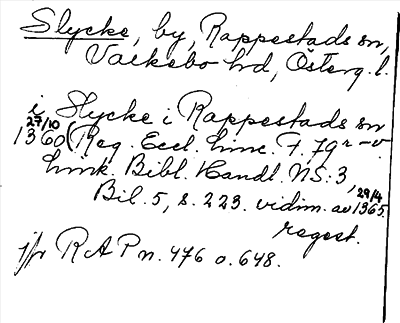 Slycke, by, Rappestads sn,
Valkebo hd, Österg. l.
i Slycke i Rappestads sn
27/10
1360 (Reg. Eccl. Linc. F. 79 r-v.
Link. Bibl. Handl. NS: 3,
Bil. 5, s. 223. vidim. av 29/4 1365.
regest.
jfr RAP n. 476 o. 648.